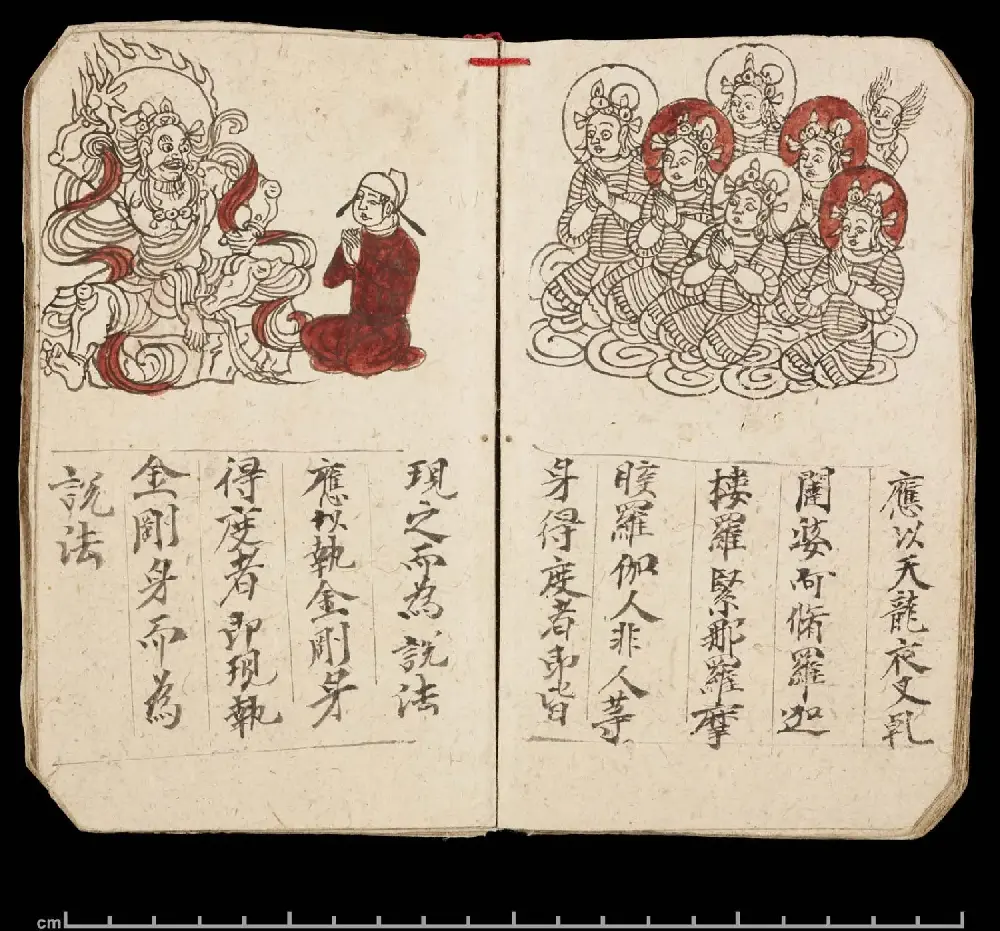 應以天龍夜叉乹
闥婆阿脩羅迦
樓羅緊那羅摩
睺羅伽人非人等
身得度者即皆
現之而為說法
應以執金剛身
得度者即現執
金剛身而為
說法
cm